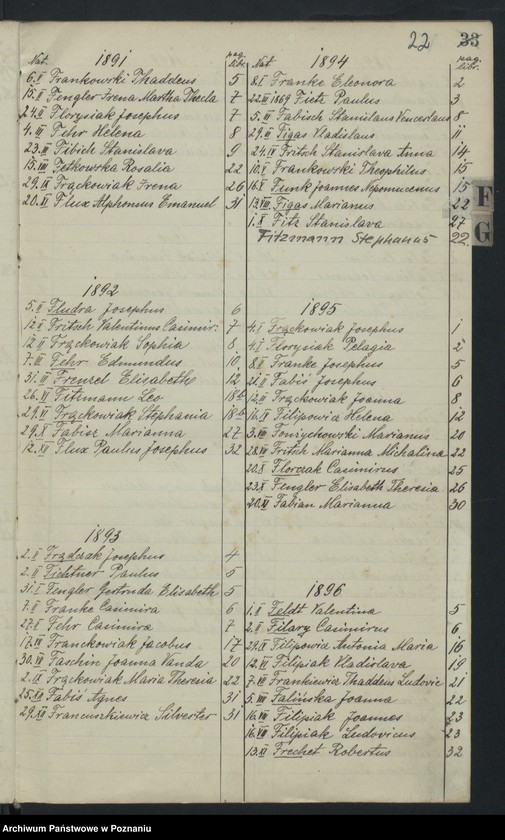 22 33
Nat. 1891 pag. libr.
6.I Frankowski Thaddeus 5
15.II Fengler Irena Martha Thecla 7
24.II Florysiak Josephus 7
4.III Fehr Helena 8
23.III Fibich Stanislava 9
15.VIII Fetkowska Rosalia 22
29.IX Frąckowiak Irena 26
20.XI Flux Alphonsus Emanuel 31
1892
5.II Fludra Josephus 6
12.II Fritsch Valentinus Casimir: 7
12.II Frąckowiak Sophia 8
7.III Fehr Edmundus 10
31.III Frenzel Elisabeth 12
26.VI Fitzmann Leo 18b
29.VI Frąckowiak Stephania 18b
29.X Fabisz Marianna 27
12.XII Flux Paulus Josephus 32
1893
2.II Frądczak Josephus 4
2.II Fichtner Paulus 5
31.I Fengler Gertruda Elisabeth 5
7.II Franke Casimira 6
27.II Fehr Casimira 7
17.VI Franckowiak Jacobus 17
30.VII Faschin Joanna Vanda 20
2.IX Frąckowiak Maria Theresia 22
25.XII Fabiś Agnes 31
29.XII Francuszkiewicz Silvester 31
Nat 1894 pag. libr.
8.I Franke Eleonora 2
22.III 1869 Fietz Paulus 3
5.II Fabisch Stanislaus Venceslaus 8
29.II Figas Vladislaus 11
24.IV Fritsch Stanislava Anna 14
10.V Frankowski Theophilus 15
16.V Funk Joannes Nepomucenus 15
13.VIII Figas Marianus 22
1.X Fitz Stanislava 27
Fitzmann Stephanus 22.
F
G
1895
4.I Frąckowiak Josephus 1
4.I Florysiak Pelagia 2
8.II Franke Josephus 5
21.II Fabiś Josephus 6
12.III Frąckowiak Joanna 8
16.IV Filipowicz Helena 12
3.VIII Foniychowski Marianus 20
28.VIII Fritsch Marianna Michalina 22
20.X Florczak Casimirus 25
23.X Fengler Elisabeth Theresia 26
20.XI Fabian Marianna 30
1896
1.II Feldt Valentina 5
2.II Filary Casimirus 6
29.VI Filipowicz Antonia Maria 16
12.VII Filipiak Vladislava 19
7.VIII Frankiewicz Thaddeus Ludovic 21
5.VIII Falińska Joanna 22
16.VIII Filipiak Joannes 23
16.VIII Filipiak Ludovicus 23
13.XI Frechet Robertus 32
Archiwum Państwowe w Poznaniu